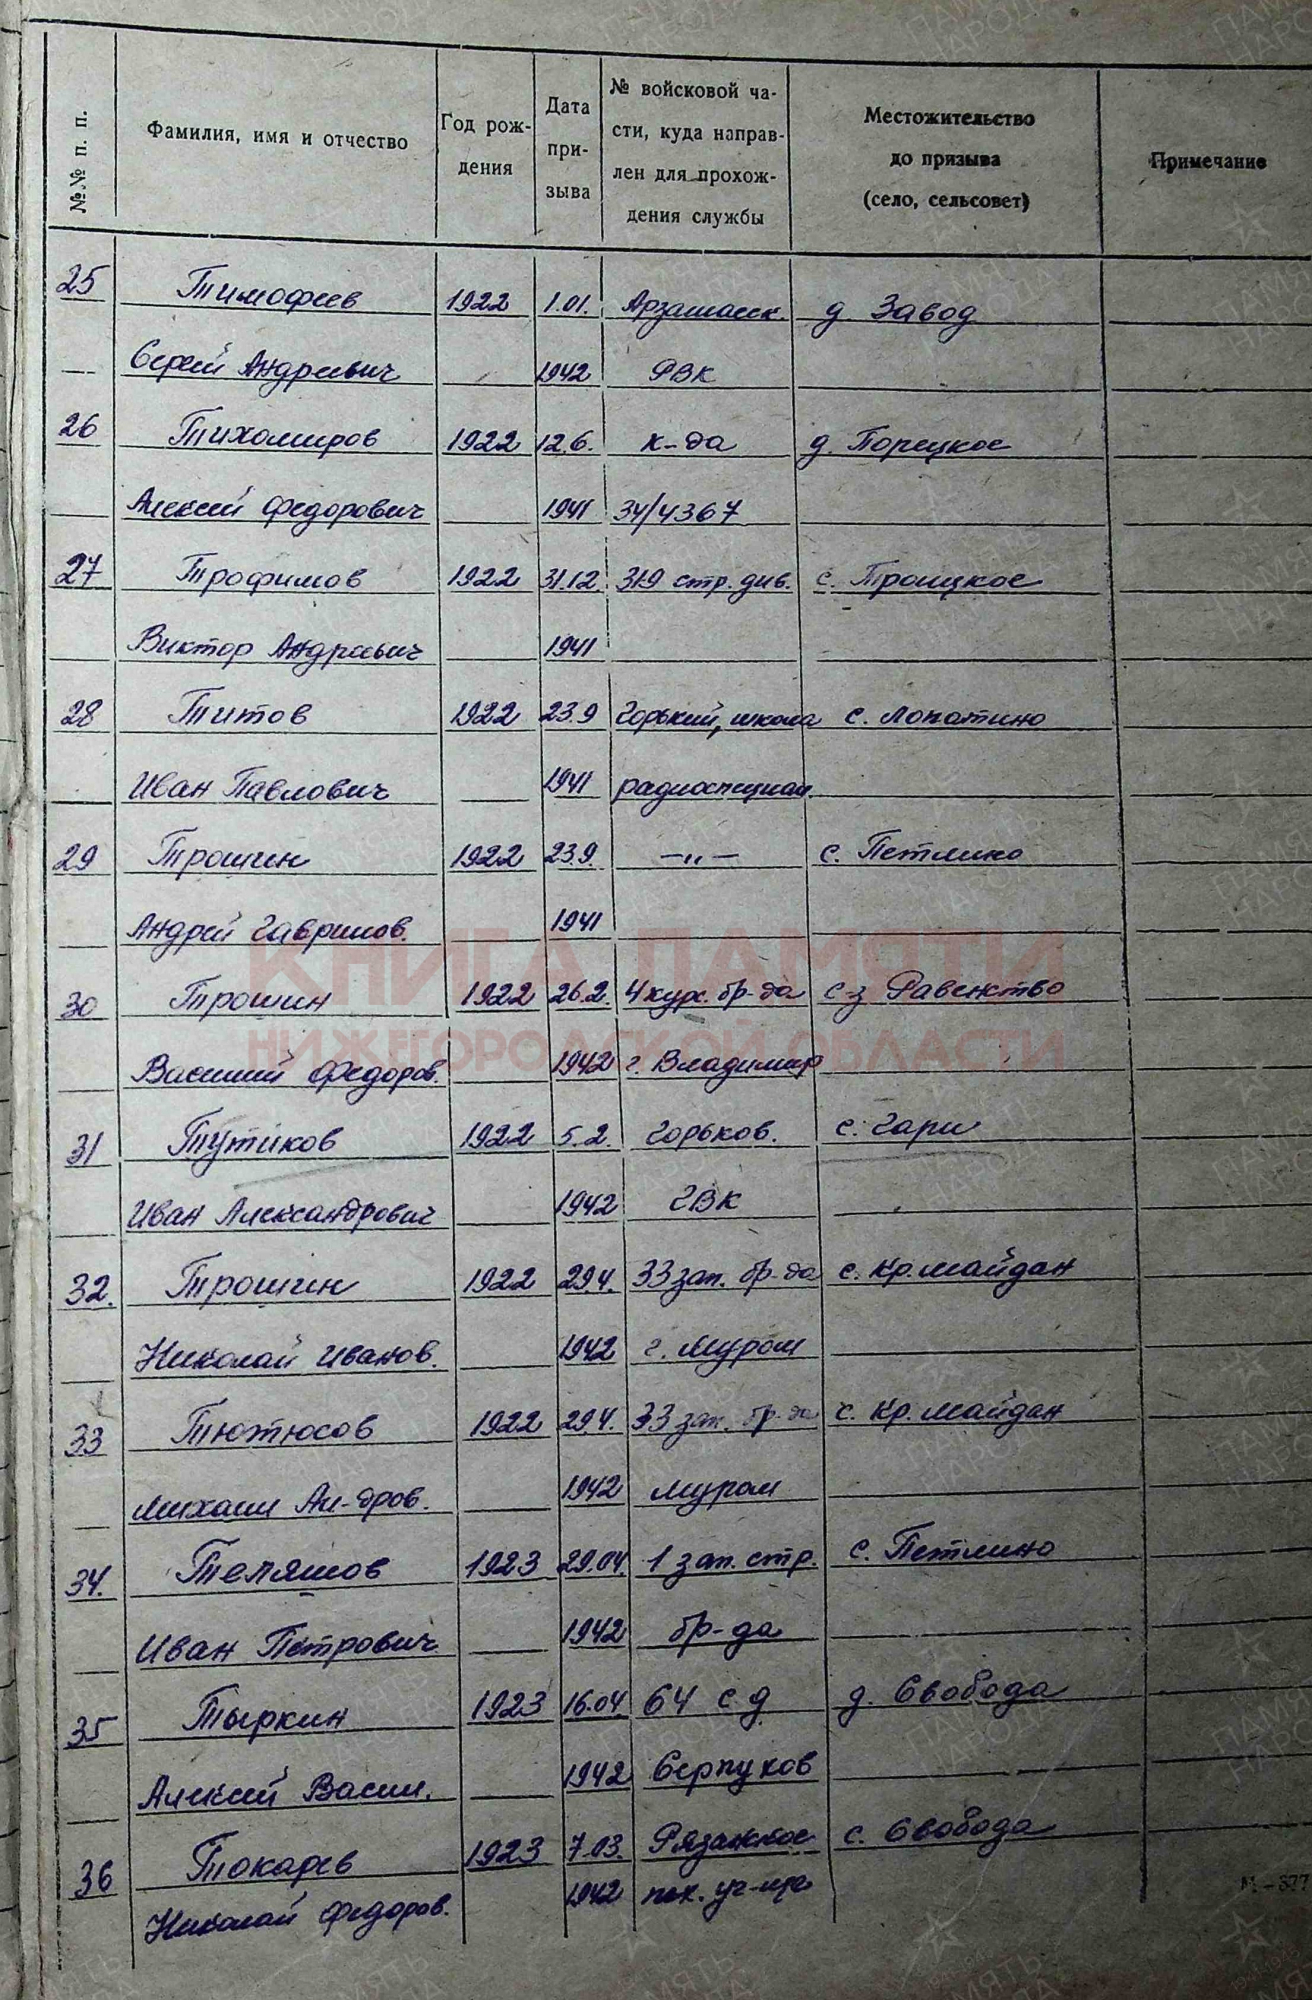 №№ п. п. Фамилия, имя и отчество Год рождения Дата призыва № войсковой части, куда направлен для прохождения службы Местожительство до призыва (село, сельсовет) Примечание
25 Тимофеев 1922 1.01. Арзамасск. д Завод
Сергей Андреевич 1942 РВК
26 Тихомиров 1922 12.6. к-да д. Порецкое
Алексей Федорович 1941 34/4367
27 Трофимов 1922 31.12. 319 стр. див. с. Троицкое
Виктор Андреевич 1941
28 Титов 1922 23.9 Горький, школа с. Лопатино
Иван Павлович 1941 радиоспециал.
29 Трошин 1922 23.9. —„— с. Петлино
Андрей Гаврилов. 1941
КНИГА ПАМЯТИ
30 Трошин 1922 26.2. 4 кур. бр-да с-з Равенство
НИЖЕГОРОДСКОЙ ОБЛАСТИ
Василий Федоров. 1942 г. Владимир
31 Тутиков 1922 5.2. Горьков. с. Гари
Иван Александрович 1942 ГВК
32. Трошин 1922 29.4. 33 зап. бр-да с. Кр. Майдан
Николай Иванов. 1942 г. Муром
33 Тютюсов 1922 29.4. 33 зап. бр-да с. Кр. Майдан
Михаил Ал-дров. 1942 Муром
34. Теляшов 1923 29.04. 1 зап. стр. с. Петлино
Иван Петрович 1942 бр-да
35 Тыркин 1923 16.04. 64 с.д д. Свобода
Алексей Васил. 1942 Серпухов
36 Токарев 1923 7.03. Рязанское с. Свобода
Николай Федоров. 1942 пех. уч-ще